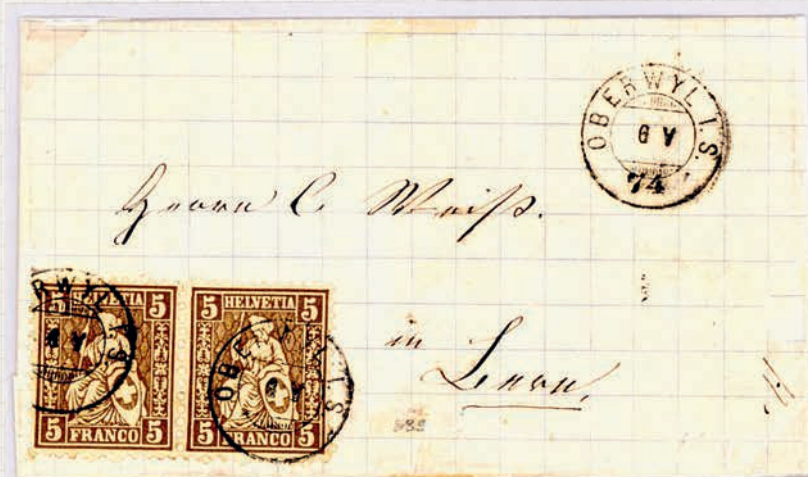 OBERWYL I.S.
6 V
74
Herrn C. Weiß.
in
Bern,
5 HELVETIA 5
5 FRANCO 5
5 HELVETIA 5
5 FRANCO 5
OBERWYL I.S.